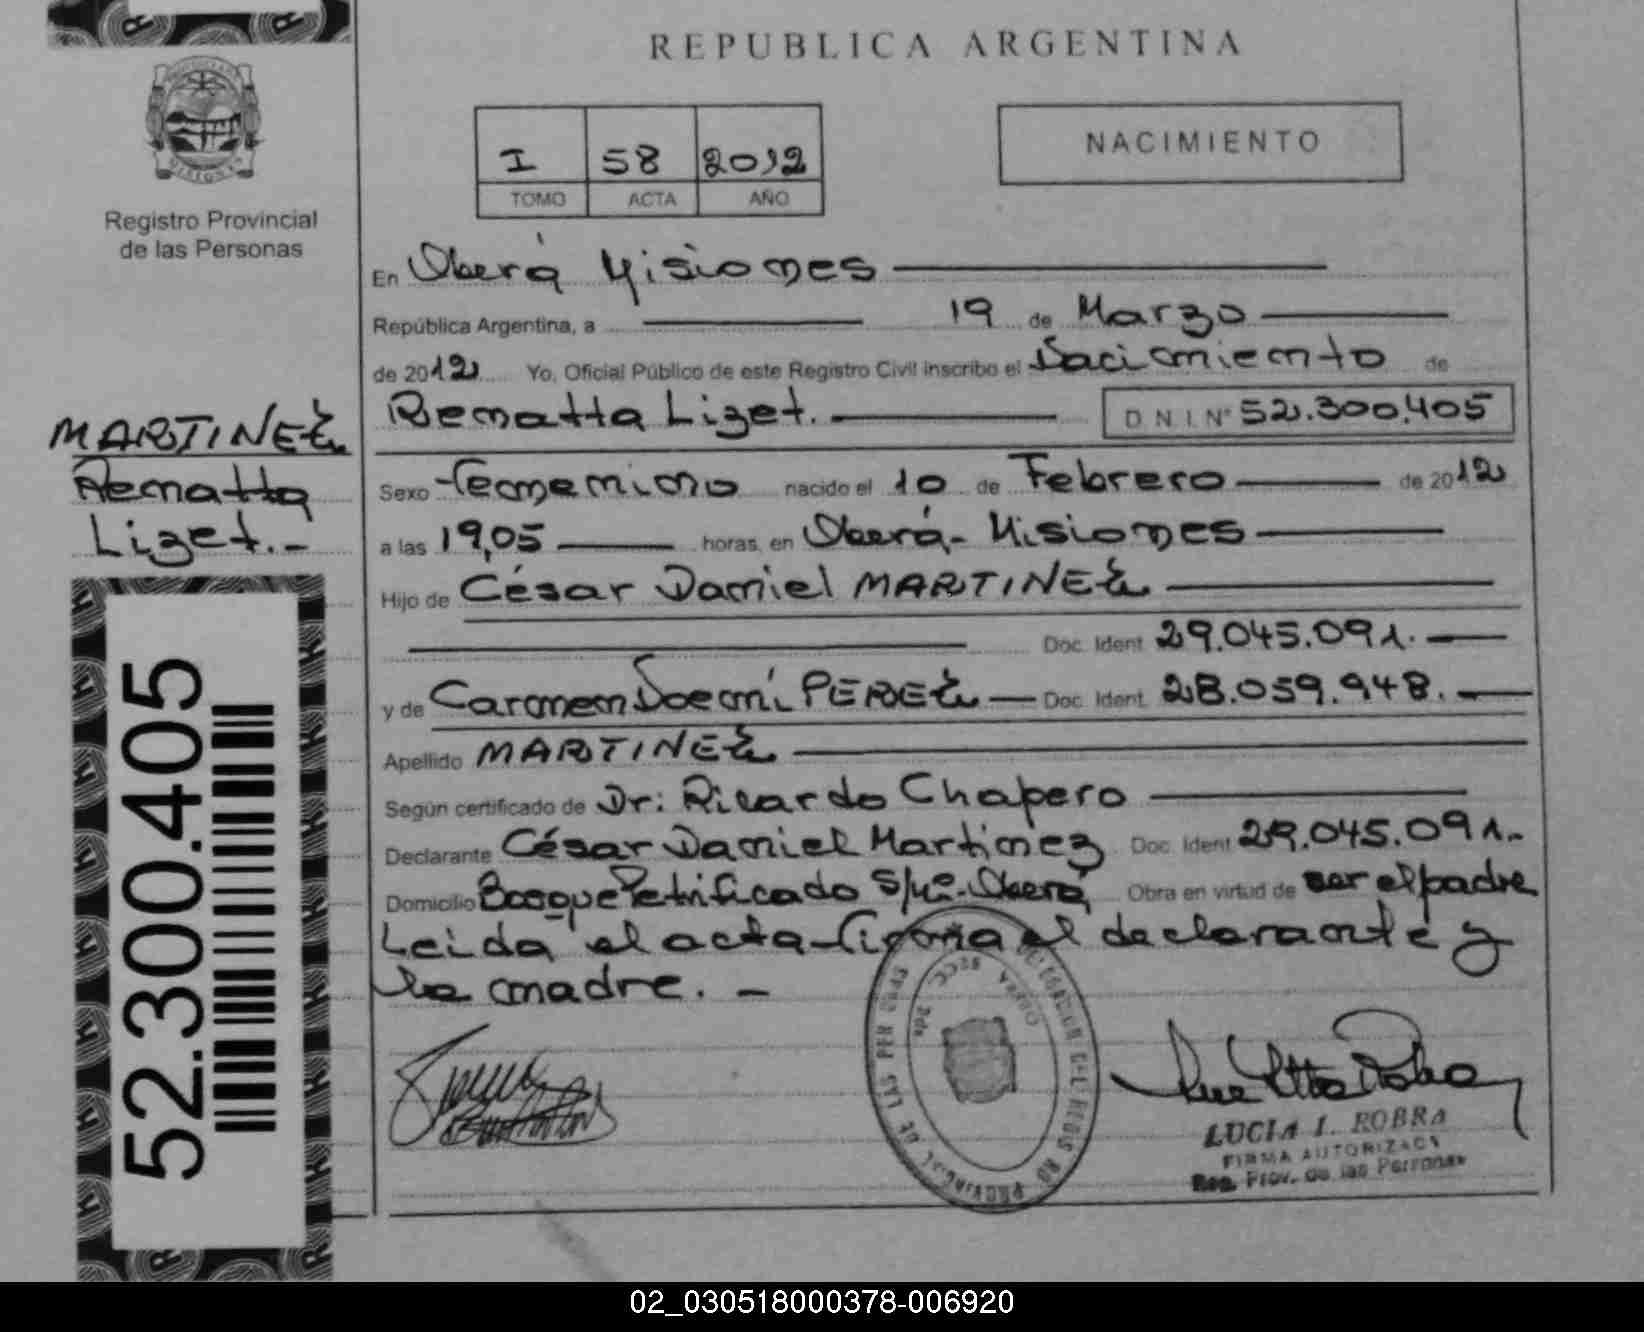 REPUBLICA ARGENTINA
MISIONES
Registro Provincial
de las Personas
I 58 2012
TOMO ACTA AÑO
NACIMIENTO
En Oberá Misiones
República Argentina, a 19 de Marzo
de 2012 Yo, Oficial Público de este Registro Civil inscribo el Nacimiento de
Renatta Lizet. D.N.I. Nº 52.300.405
MARTINEZ
Renatta
Lizet.-
Sexo Femenino nacido el 10 de Febrero de 2012
a las 19,05 horas, en Oberá- Misiones
Hijo de César Daniel MARTINEZ
Doc. Ident. 29.045.091.
y de Carmen Noemí PEREZ Doc. Ident. 28.059.948.
Apellido MARTINEZ
Según certificado de Dr: Ricardo Chapero
Declarante César Daniel Martinez Doc. Ident 29.045.091.-
Domicilio Bosque Petrificado S/Nº-Oberá Obra en virtud de ser el padre
Leida el acta firma el declarante y
la madre. -
52.300.405
LUCIA I. ROBRA
FIRMA AUTORIZACY
Reg. Prov. de las Personas
02_030518000378-006920